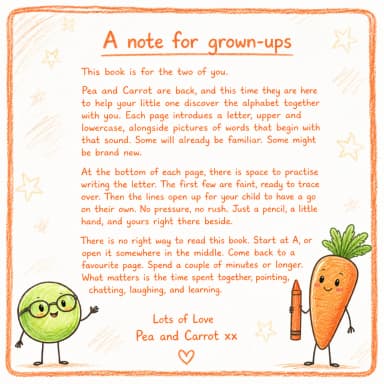 A note for grown-ups
This book is for the two of you.
Pea and Carrot are back, and this time they are here
to help your little one discover the alphabet together
with you. Each page introdues a letter, upper and
lowercase, alongside pictures of words that begin with
that sound. Some will already be familiar. Some might
be brand new.
At the bottom of each page, there is space to practise
writing the letter. The first few are faint, ready to trace
over. Then the lines open up for your child to have a go
on their own. No pressure, no rush. Just a pencil, a little
hand, and yours right there beside.
There is no right way to read this book. Start at A, or
open it somewhere in the middle. Come back to a
favourite page. Spend a couple of minutes or longer.
What matters is the time spent together, pointing,
chatting, laughing, and learning.
Lots of Love
Pea and Carrot xx